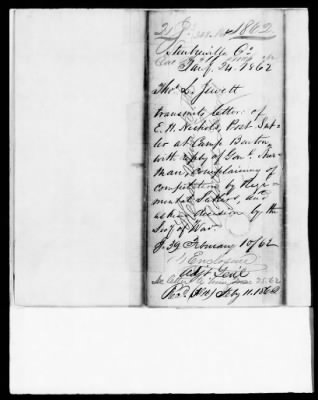 1862
Steubenville O.
Jany. 24. 1862
Thos. L. Jewett
transmits letter of
E. H. Nichols, Post Sut-
ler at Camp Benton,
with reply of Genl. Sher-
man, complaining of
competition by Regi-
mental Sutlers, and
asks decision by the
Secy of War.
J. 39 February 10/62
1 Enclosure
Adjt Genl
Recd. Feby 11. 1862